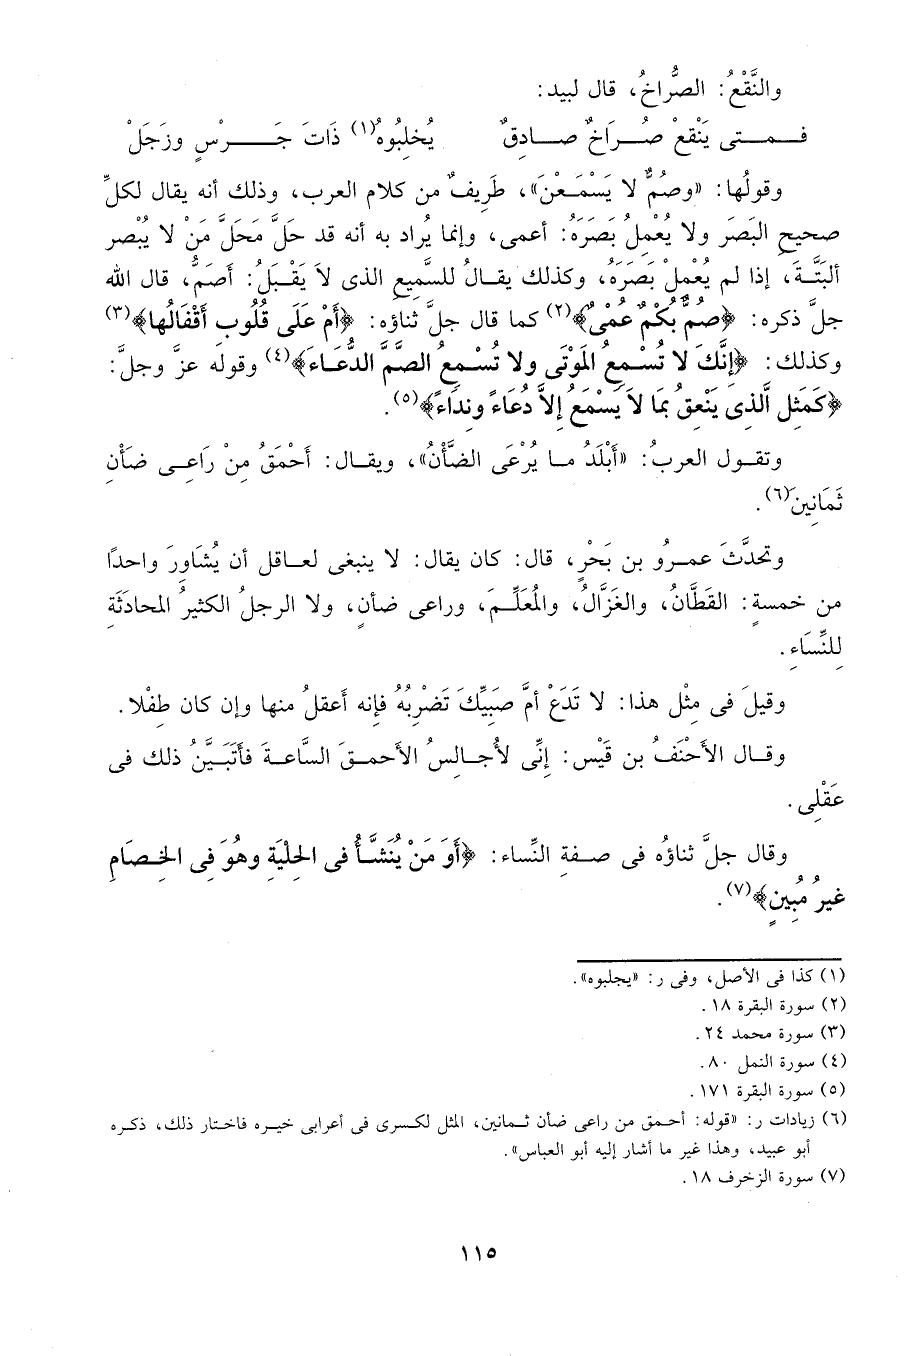 والنَّقْعُ: الصُّراخُ، قال لبيد:
فـمـــتى يَنْقعْ صُـــرَاخٌ صــادقٌ يُحْلِبُوهُ(١) ذَاتَ جَـــــرْسٍ وزَجَلْ
وقولُها: «وصُمٌّ لا يَسْمَعْنَ»، طَرِيفٌ من كلام العرب، وذلك أنه يقال لكلِّ
صحيحِ البَصَرِ ولا يُعْمِلُ بَصَرَهُ: أعمى، وإنما يُراد به أنه قد حَلَّ مَحَلَّ مَنْ لا يُبْصِر
ألبَتَّةَ، إذا لم يُعْمِلْ بَصَرَهُ، وكذلك يقـالُ للسَّميعِ الذى لاَ يَقْبَلُ: أَصَمُّ، قال الله
جلَّ ذكره: ﴿صُمٌّ بُكْمٌ عُمْىٌ﴾(٢) كما قال جلَّ ثناؤه: ﴿أَمْ عَلَى قُلُوبٍ أَقْفَالُها﴾(٣)
وكذلك: ﴿إنَّكَ لا تُسْمِعُ المَوْتَى ولا تُسْمِعُ الصُّمَّ الدُّعَاءَ﴾(٤) وقوله عزَّ وجلَّ:
﴿كَمَثَلِ الَّذِى يَنْعِقُ بِمَا لاَ يَسْمَعُ إلاَّ دُعَاءً ونِدَاءً﴾(٥).
وتقـول العربُ: «أَبْلَدُ مـا يُرْعَى الضَّأْنُ»، ويقـال: أَحْمَقُ مِنْ رَاعِـى ضَأْنٍ
ثَمَانِينَ(٦).
وتحدَّثَ عمـرُو بن بَحْرٍ، قال: كان يقال: لا ينبغى لعـاقل أن يُشَاوِرَ واحدًا
من خمسةٍ: القَطَّانُ، والغَزَّالُ، والمُعَلِّـمَ، وراعى ضأنٍ، ولا الرجلُ الكثيرُ المحادَثَةِ
لِلنِّسَاءِ.
وقيلَ فى مِثْل هذا: لا تَدَعْ أمَّ صَبِيِّكَ تَضْرِبُهُ فإنه أَعقلُ منها وإن كان طِفْلا.
وقـال الأَحْنَفُ بن قَيْس: إنِّى لأُجـالِسُ الأَحمـقَ السَّاعـةَ فأَتَبَيَّنُ ذلك فى
عَقْلِى.
وقال جلَّ ثناؤه فى صـفةِ النِّساء: ﴿أَوَ مَنْ يُنَشَّـأُ فى الحِلْيَةِ وهُوَ فى الخِـصَامِ
غيرُ مُبِينٍ﴾(٧).
(١) كذا فى الأصل، وفى ر: «يجلبوه».
(٢) سورة البقرة ١٨.
(٣) سورة محمد ٢٤.
(٤) سورة النمل ٨٠.
(٥) سورة البقرة ١٧١.
(٦) زيادات ر: «قوله: أحمق من راعى ضأن ثمانين، المثل لكسرى فى أعرابى خيره فاختار ذلك، ذكره
أبو عبيد، وهذا غير ما أشار إليه أبو العباس».
(٧) سورة الزخرف ١٨.
١١٥